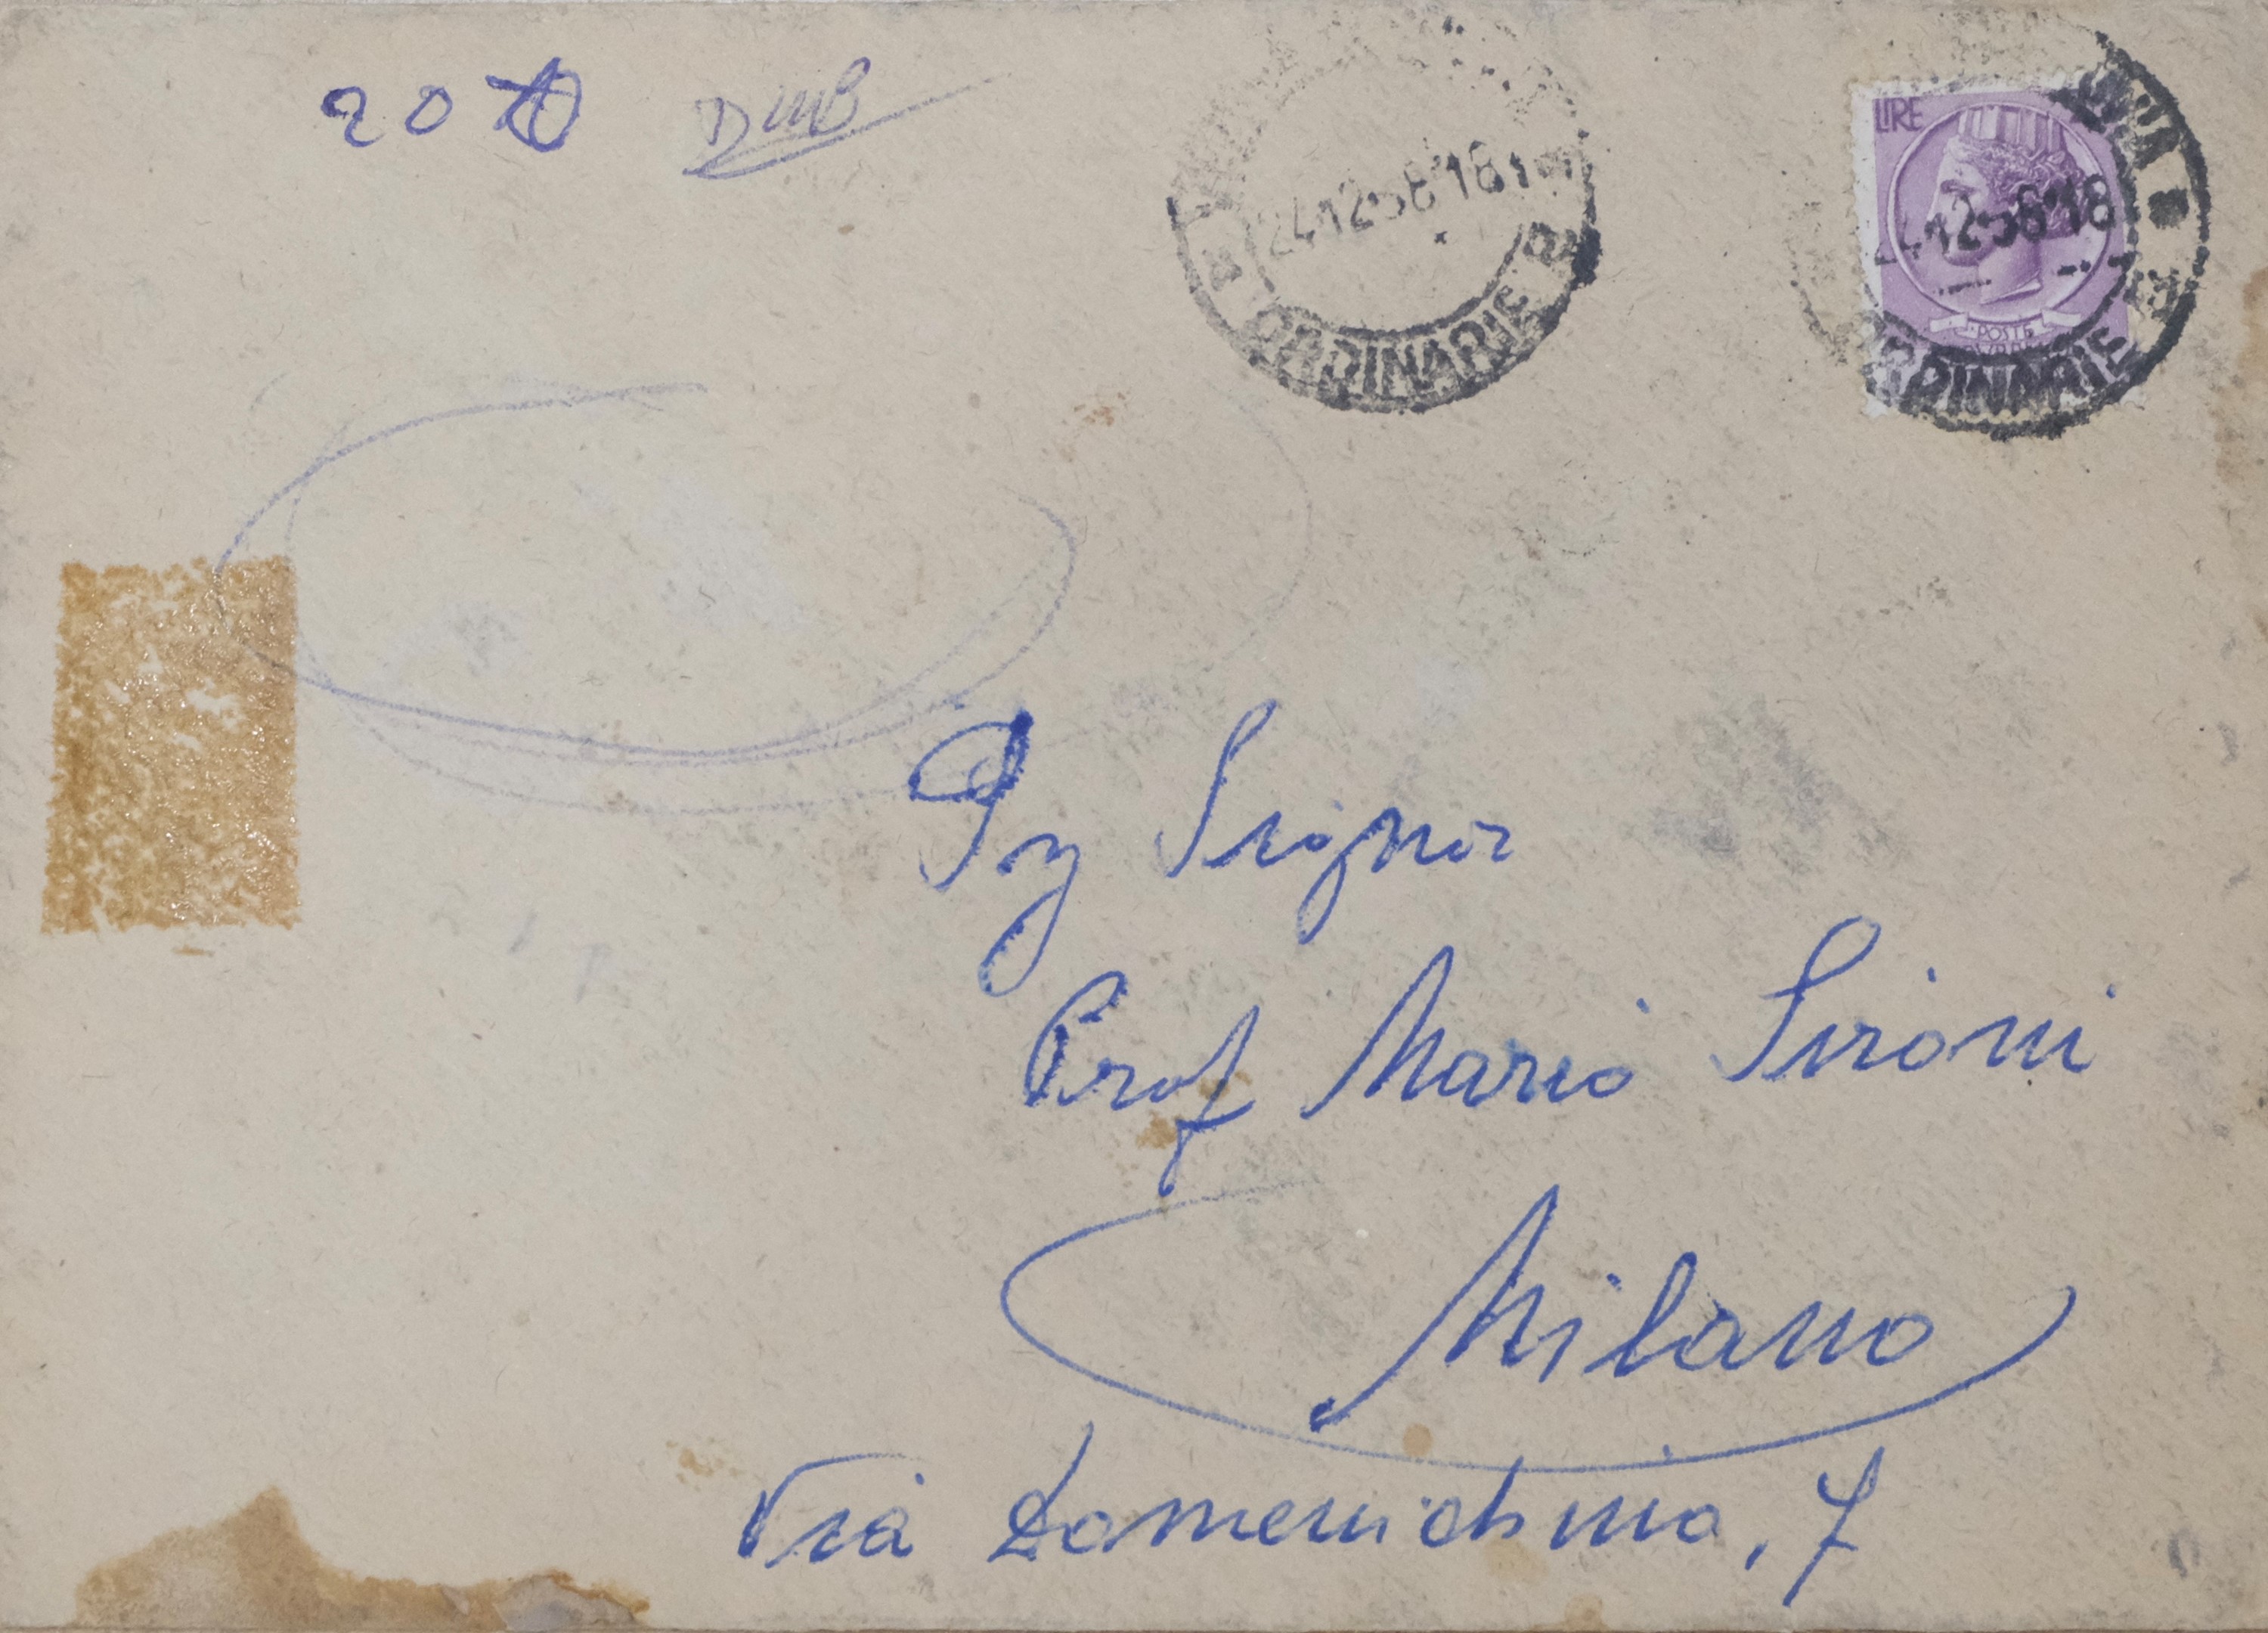 20
24.12.56.18
ORDINARIE
LIRE
24.12.56.18
POSTE
ORDINARIE
Signor
Prof Mario Sironi
Milano
Via Domenichino, 7